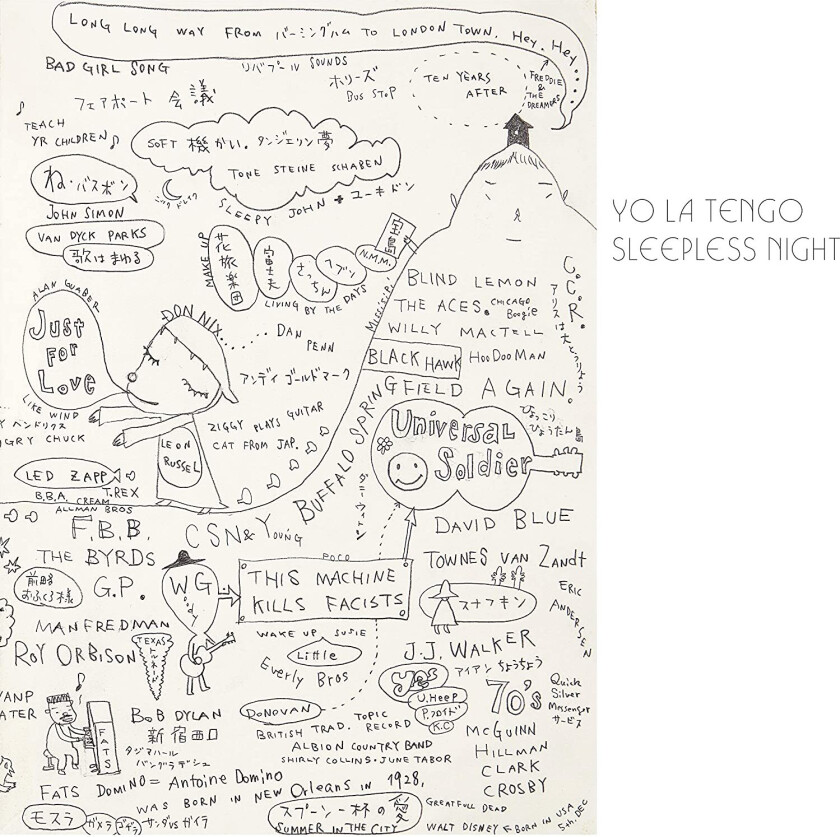 LONG LONG WAY FROM バーミングハム TO LONDON TOWN. HEY. HEY...
BAD GIRL SONG
リバプール SOUNDS
ホリーズ
BUS STOP
TEN YEARS
AFTER
FREDDIE
&
THE
DREAMERS
フェアポート 会議
TEACH
YR CHILDREN
SOFT 機かい. タンジェリン夢
TONE STEINE SCHABEN
ね・バスボン
ニック ドレイク
SLEEPY JOHN + ユーキドン
JOHN SIMON
VAN DYCK PARKS
歌はまわる
MAKE UP
花旅楽団
富士夫
さっちん
ヘブン
N.M.M.
LIVING BY THE DAYS
YO LA TENGO
SLEEPLESS NIGHT
BLIND LEMON
THE ACES.
CHICAGO
Boogie
WILLY MACTELL
C.C.R.
アリスは大とうりょう
BLACK HAWK
HOODOOMAN
BUFFALO SPRINGFIELD AGAIN.
ALAN GUABER
Just
FOR
Love
DON NIX.......
DAN
PENN
アンディ ゴールドマーク
LIKE WIND
ヘンドリクス
GRY CHUCK
ZIGGY PLAYS GUITAR
CAT FROM JAP.
LEON
RUSSEL
Universal
Soldier
ひょっこり
ひょうたん島
LED ZAPP
B.B.A. CREAM
T.REX
ALLMAN BROS
F.B.B.
CSN& Young
DAVID BLUE
THE BYRDS
POCO
TOWNES VAN Zandt
前略
おふくろ様
G.P.
WG
THIS MACHINE
KILLS FACISTS
スナフキン
ERIC
ANDERSEN
MANFREDMAN
ROY ORBISON
TEXAS
トルネード
WAKE UP SUSIE
Little
Everly Bros
J.J. WALKER
アイアン ちょうちょう
yes
U.HEEP
P.フロイド
K.C
70's
Quick
Silver
Messenger
サービス
FATS
BOB DYLAN
新宿西口
タジマハール
バングラデシュ
DONOVAN
BRITISH TRAD.
TOPIC
RECORD
ALBION COUNTRY BAND
SHIRLY COLLINS・JUNE TABOR
McGUINN
HILLMAN
CLARK
CROSBY
FATS DOMINO = Antoine Domino
WAS BORN IN NEW Orleans IN 1928,
モスラ
ガメラ
ゴジラ
サンダ VS ガイラ
スプーン一杯の愛
SUMMER IN THE CITY
GREATFULL DEAD
WALT DISNEY
BORN IN USA
5th. DEC